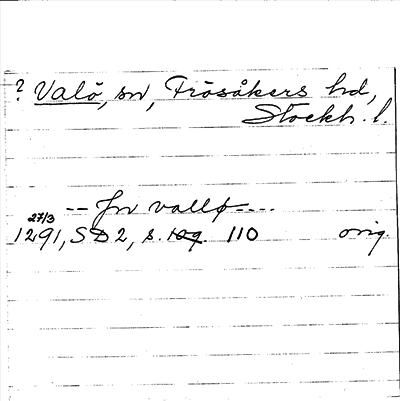 ? Valö, sn, Frösåkers hd,
Stockh. l.
-- jn vallø ----
27/3
1291, SD 2, s. 109. 110 orig.